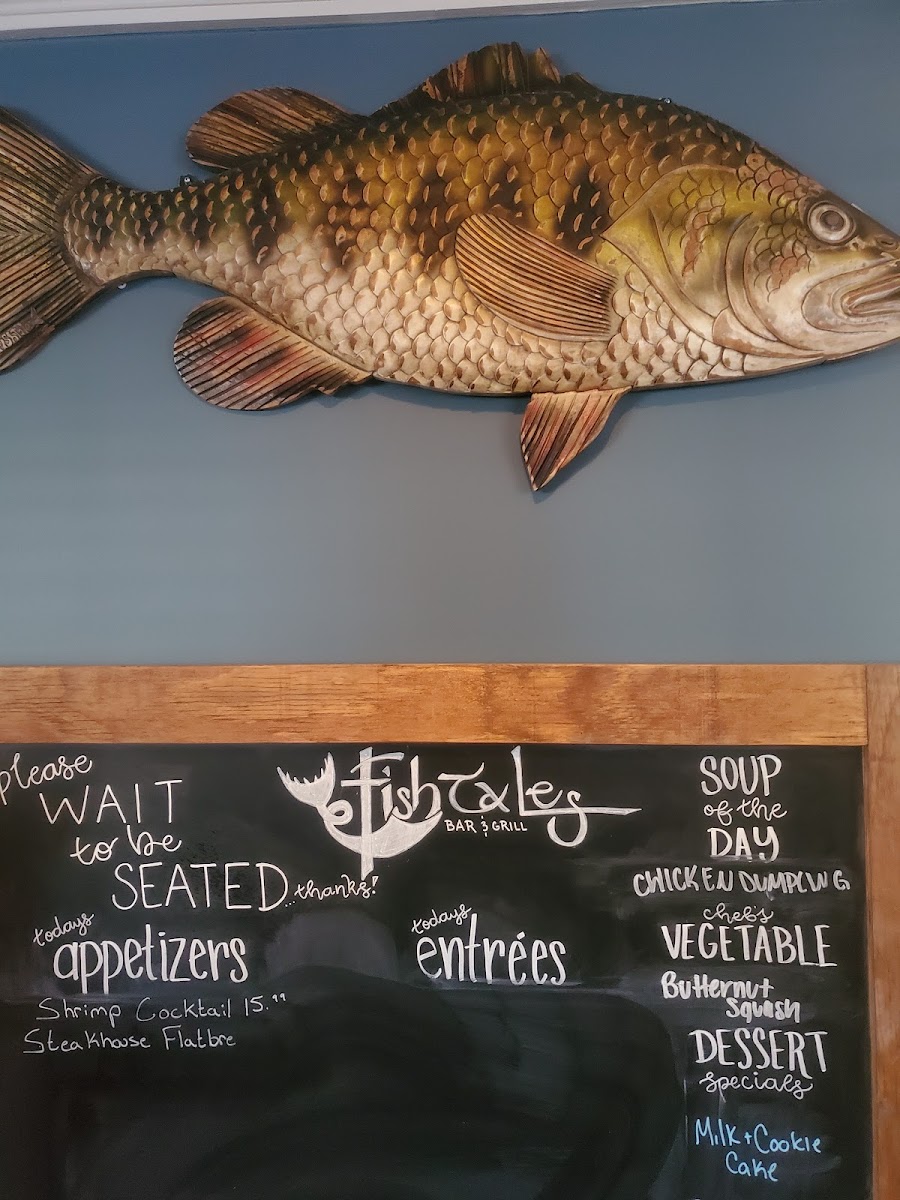 please
WAIT
to be
SEATED
...thanks!
Fish Tales
BAR & GRILL
todays
appetizers
Shrimp Cocktail 15.99
Steakhouse Flatbre
todays
entrées
SOUP
of the
DAY
CHICKEN DUMPLING
chef's
VEGETABLE
Butternut
Squash
DESSERT
specials
Milk + Cookie
Cake